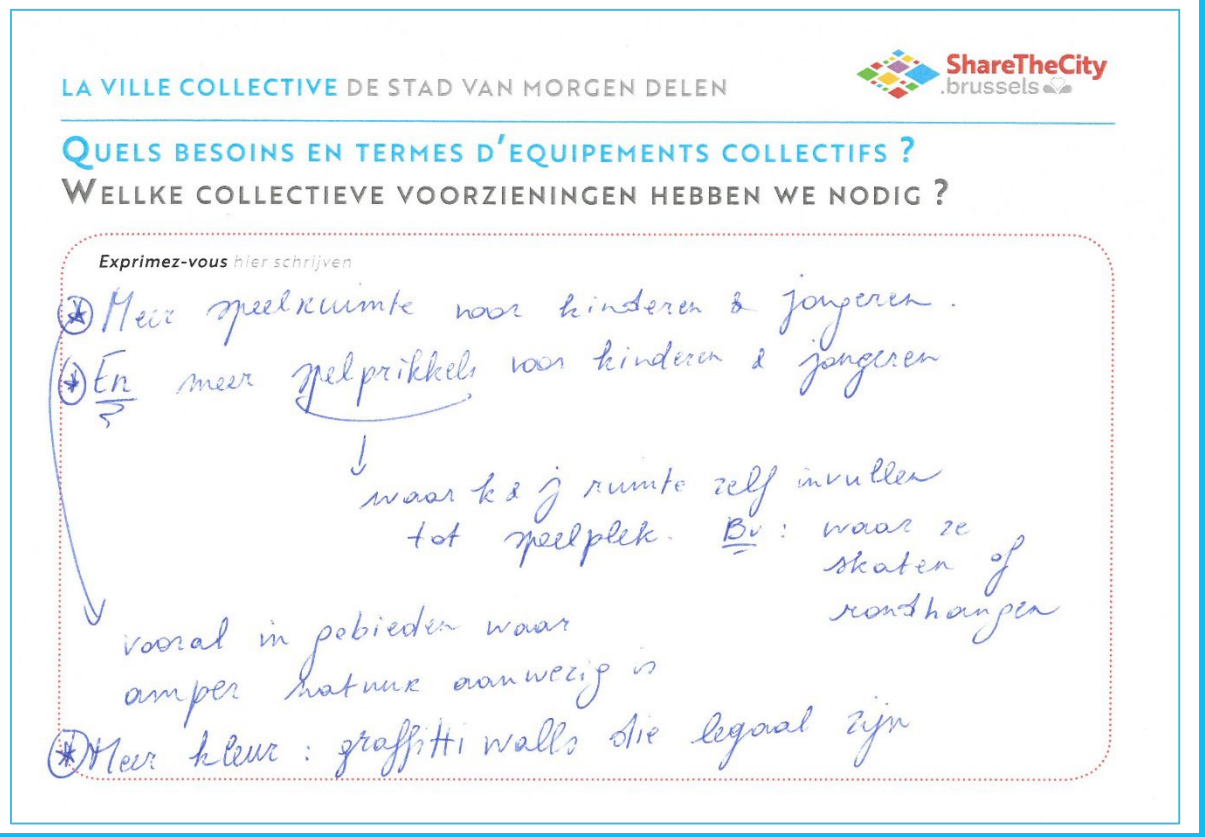 LA VILLE COLLECTIVE DE STAD VAN MORGEN DELEN
ShareTheCity
.brussels
QUELS BESOINS EN TERMES D'EQUIPEMENTS COLLECTIFS ?
WELLKE COLLECTIEVE VOORZIENINGEN HEBBEN WE NODIG ?
Exprimez-vous hier schrijven
* Meer speelruimte voor kinderen & jongeren.
* En meer spelprikkels voor kinderen & jongeren
↓
waar k & j ruimte zelf invullen
tot speelplek. Bv: waar ze
skaten of
rondhangen
vooral in gebieden waar
amper natuur aanwezig is
* Meer kleur : graffitti walls die legaal zijn